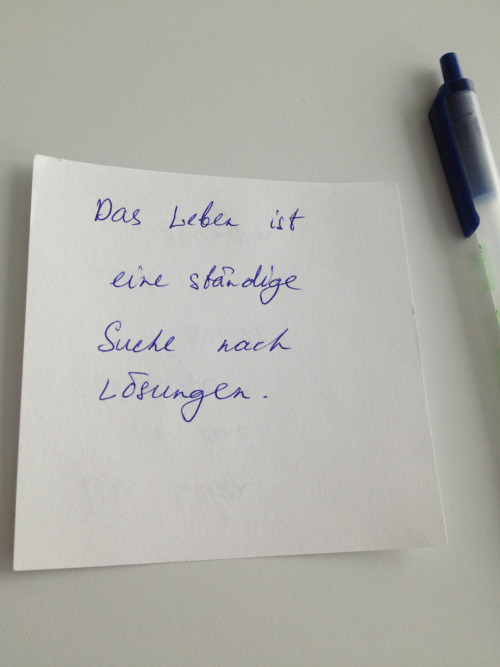 Das Leben ist
eine ständige
Suche nach
Lösungen.